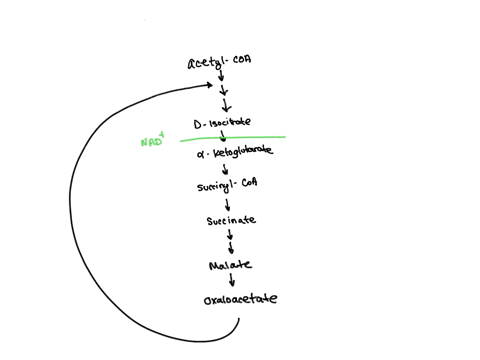 acetyl-COA
D-Isocitrate
NAD+
α-Ketoglutarate
Succinyl-CoA
Succinate
Malate
Oxaloacetate